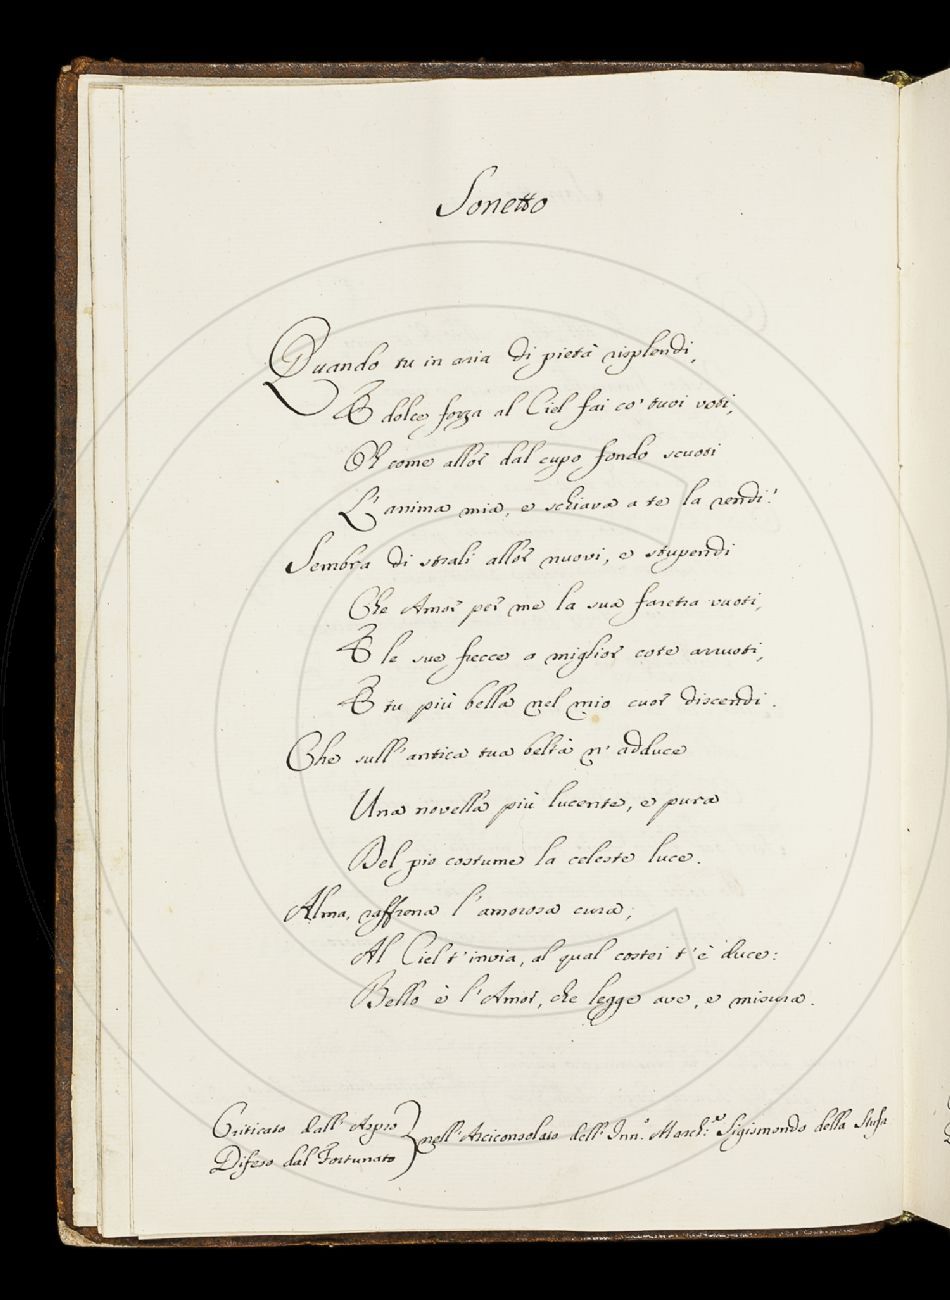 Sonetto
Quando tu in aria di pietà risplendi,
E dolce forza al Ciel fai co' tuoi voti,
Oh come allor dal cupo fondo scuoti
L'anima mia, e schiava a te la rendi!
Sembra di strali allor nuovi, e stupendi
Che Amor per me la sua faretra vuoti,
E le sue frecce a miglior cote arruoti,
E tu più bella nel mio cuor discendi.
Che sull'antica tua beltà n'adduce
Una novella più lucente, e pura
Del pio costume la celeste luce.
Alma, raffrena l'amorosa cura;
Al Ciel t'invia, al qual costei t'è duce:
Bello è l'Amor, che legge ave, e misura.
Criticato dall'Aspro
Difeso dal Fortunato
nell'Arciconsolato dell'Inn.º March.e Sigismondo della Stufa